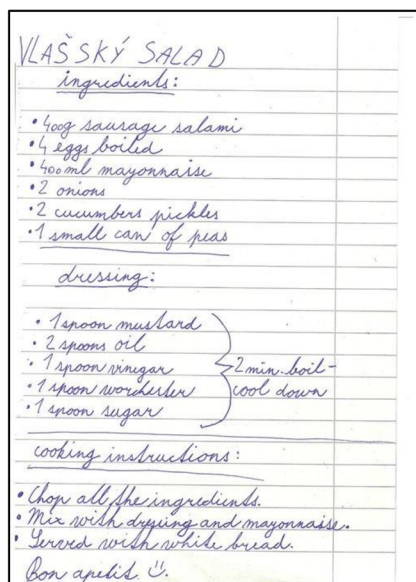 VLAŠSKÝ SALAD
ingredients:
• 400g sausage salami
• 4 eggs boiled
• 400ml mayonnaise
• 2 onions
• 2 cucumbers pickles
• 1 small can of peas
dressing:
• 1 spoon mustard
• 2 spoons oil
• 1 spoon vinegar
• 1 spoon worchester
• 1 spoon sugar
2 min. boil -
cool down
cooking instructions:
• Chop all the ingredients.
• Mix with dressing and mayonnaise.
• Served with white bread.
Bon apetit. Ü.